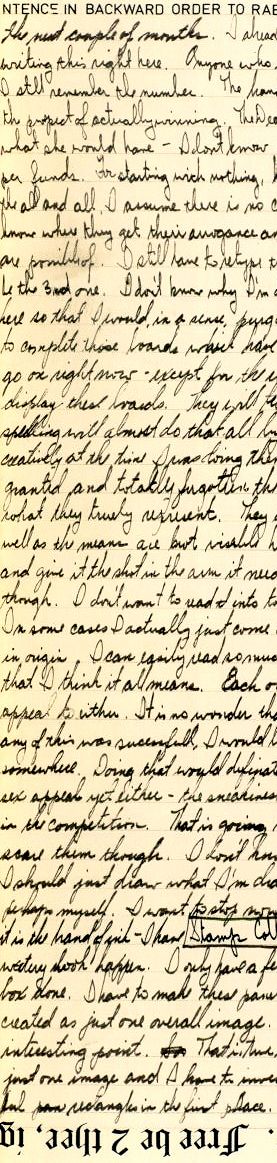 NTENCE IN BACKWARD ORDER TO RAE
the next couple of months. I alread
writing this right here. Anyone who
I still remember the number. The
the prospect of actually winning. The
what she would have - I don't know
per funds. For starting with nothing,
the all and all, I assume there is no c
know where they get their arrogance an
are possible of. I still have to retype t
be the 3rd one. I don't know why I'm
here so that I would, in a sense, purg
to complete those boards which have
go on right now - except for the
display these boards. They will
spelling will almost do that all
creatively at the time I was doing the
granted and totally forgotten the
what they truly represent. They
well as the means are but visible
and give it the shot in the arm it need
though. I don't want to read it into t
In some cases I actually just come
in origin. I can easily read so muc
that I think it all means. Each o
appeal to either. It is no wonder th
any of this was successful, I would
somewhere. Doing that would definat
sex appeal yet either - the sneakines
in the competition. That is going
scare them though. I don't kno
I should just draw what I'm
perhaps myself. I want to stop now
it is the hand of ink - I have Stamp Col
book happen. I only have a fe
box done. I have to make these pane
created as just one overall image.
interesting point. That is true,
just one image and I have to
ful rectangles in the first place.
. Free be 2 thee, ig